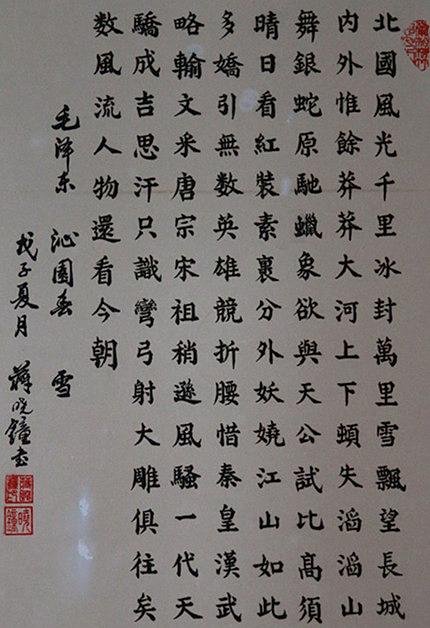 北國風光千里冰封萬里雪飄望長城
内外惟餘莽莽大河上下頓失滔滔山
舞銀蛇原馳蠟象欲與天公試比高須
晴日看紅裝素裹分外妖嬈江山如此
多嬌引無数英雄競折腰惜秦皇漢武
略輸文采唐宗宋祖稍遜風騷一代天
驕成吉思汗只識彎弓射大雕俱往矣
数風流人物還看今朝
毛泽东 沁園春 雪
戊子夏月 蒋晓鐘书